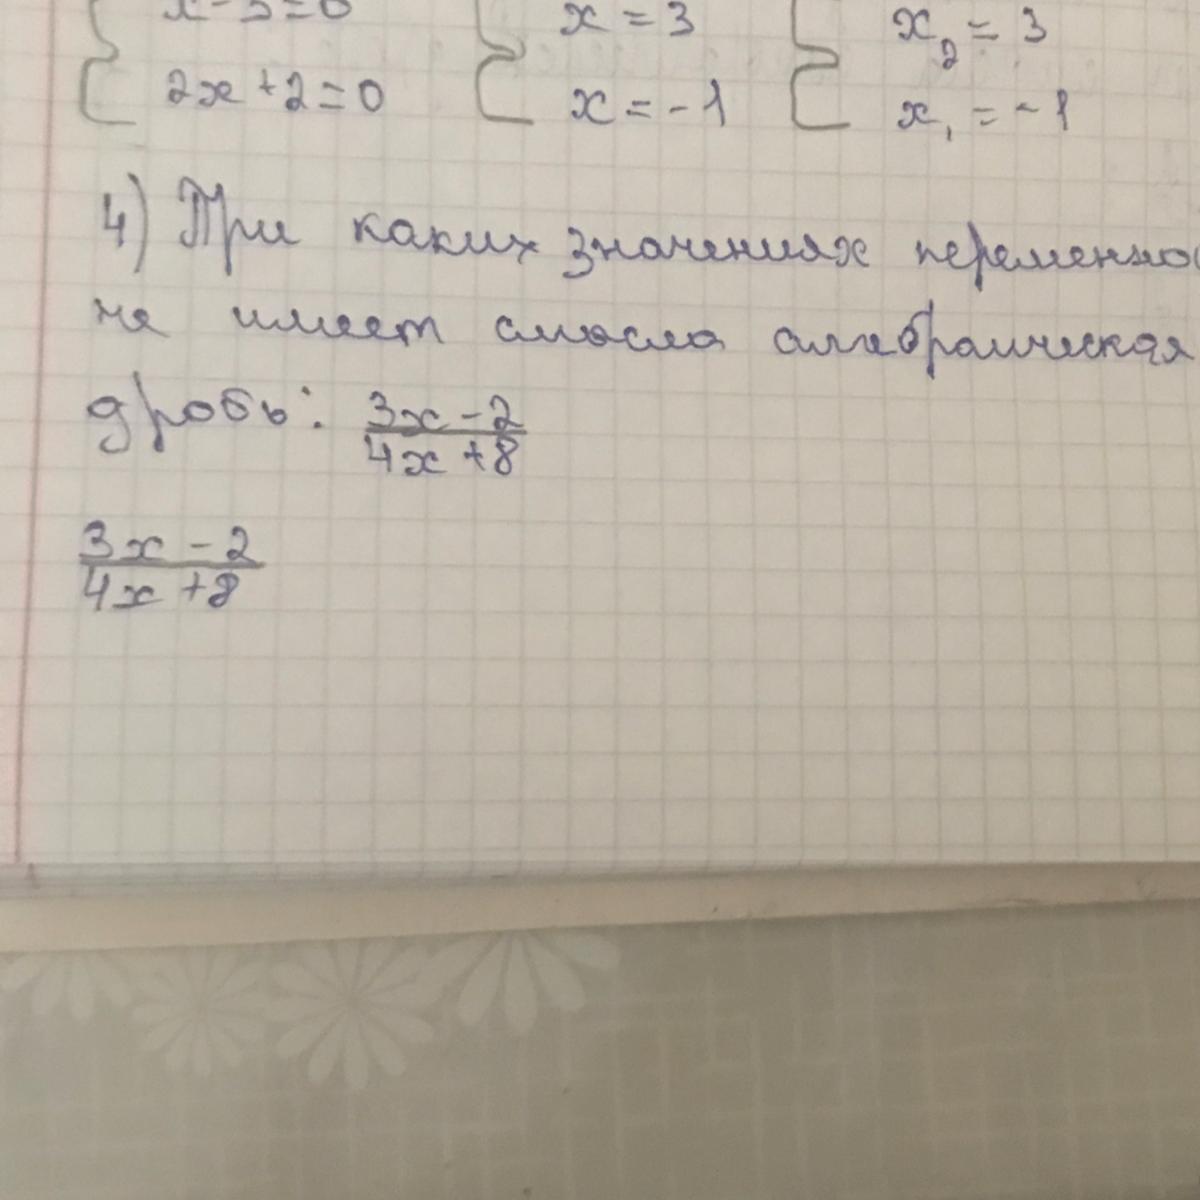 x - 3 = 0 x = 3 x₂ = 3
2x + 2 = 0 x = -1 x₁ = -1
4) При каких значениях переменно
не имеет смысла алгебраическая
дробь: 3x - 2
4x + 8
3x - 2
4x + 8